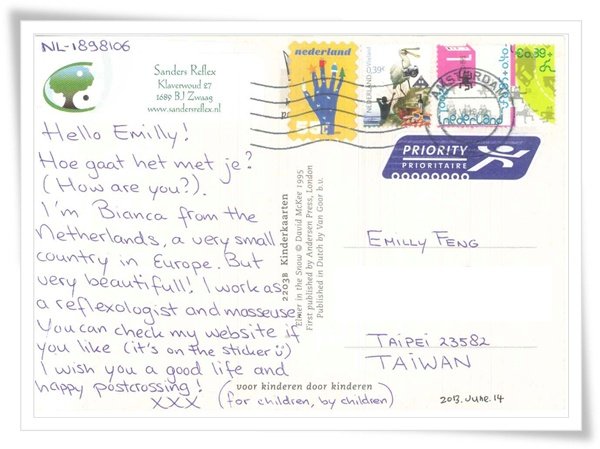 NL-1898106
Sanders Reflex
Klaverwoud 27
1689 BJ Zwaag
www.sandersreflex.nl
Hello Emilly!
Hoe gaat het met je?
(How are you?).
I'm Bianca from the
Netherlands, a very small
country in Europe. But
very beautifull! I work as
a reflexologist and masseuse.
You can check my website if
you like (it's on the sticker ü)
I wish you a good life and
happy postcrossing!
xxx
voor kinderen door kinderen
(for children, by children)
22038 Kinderkaarten
Elmer in the Snow © David McKee 1995
First published by Andersen Press, London
Published in Dutch by Van Goor b.v.
nederland
NEDERLAND
0,39€
1
nederland
€0.39+
AMSTERDAM
PRIORITY
PRIORITAIRE
EMILLY FENG
TAIPEI 23582
TAIWAN
2013.June.14